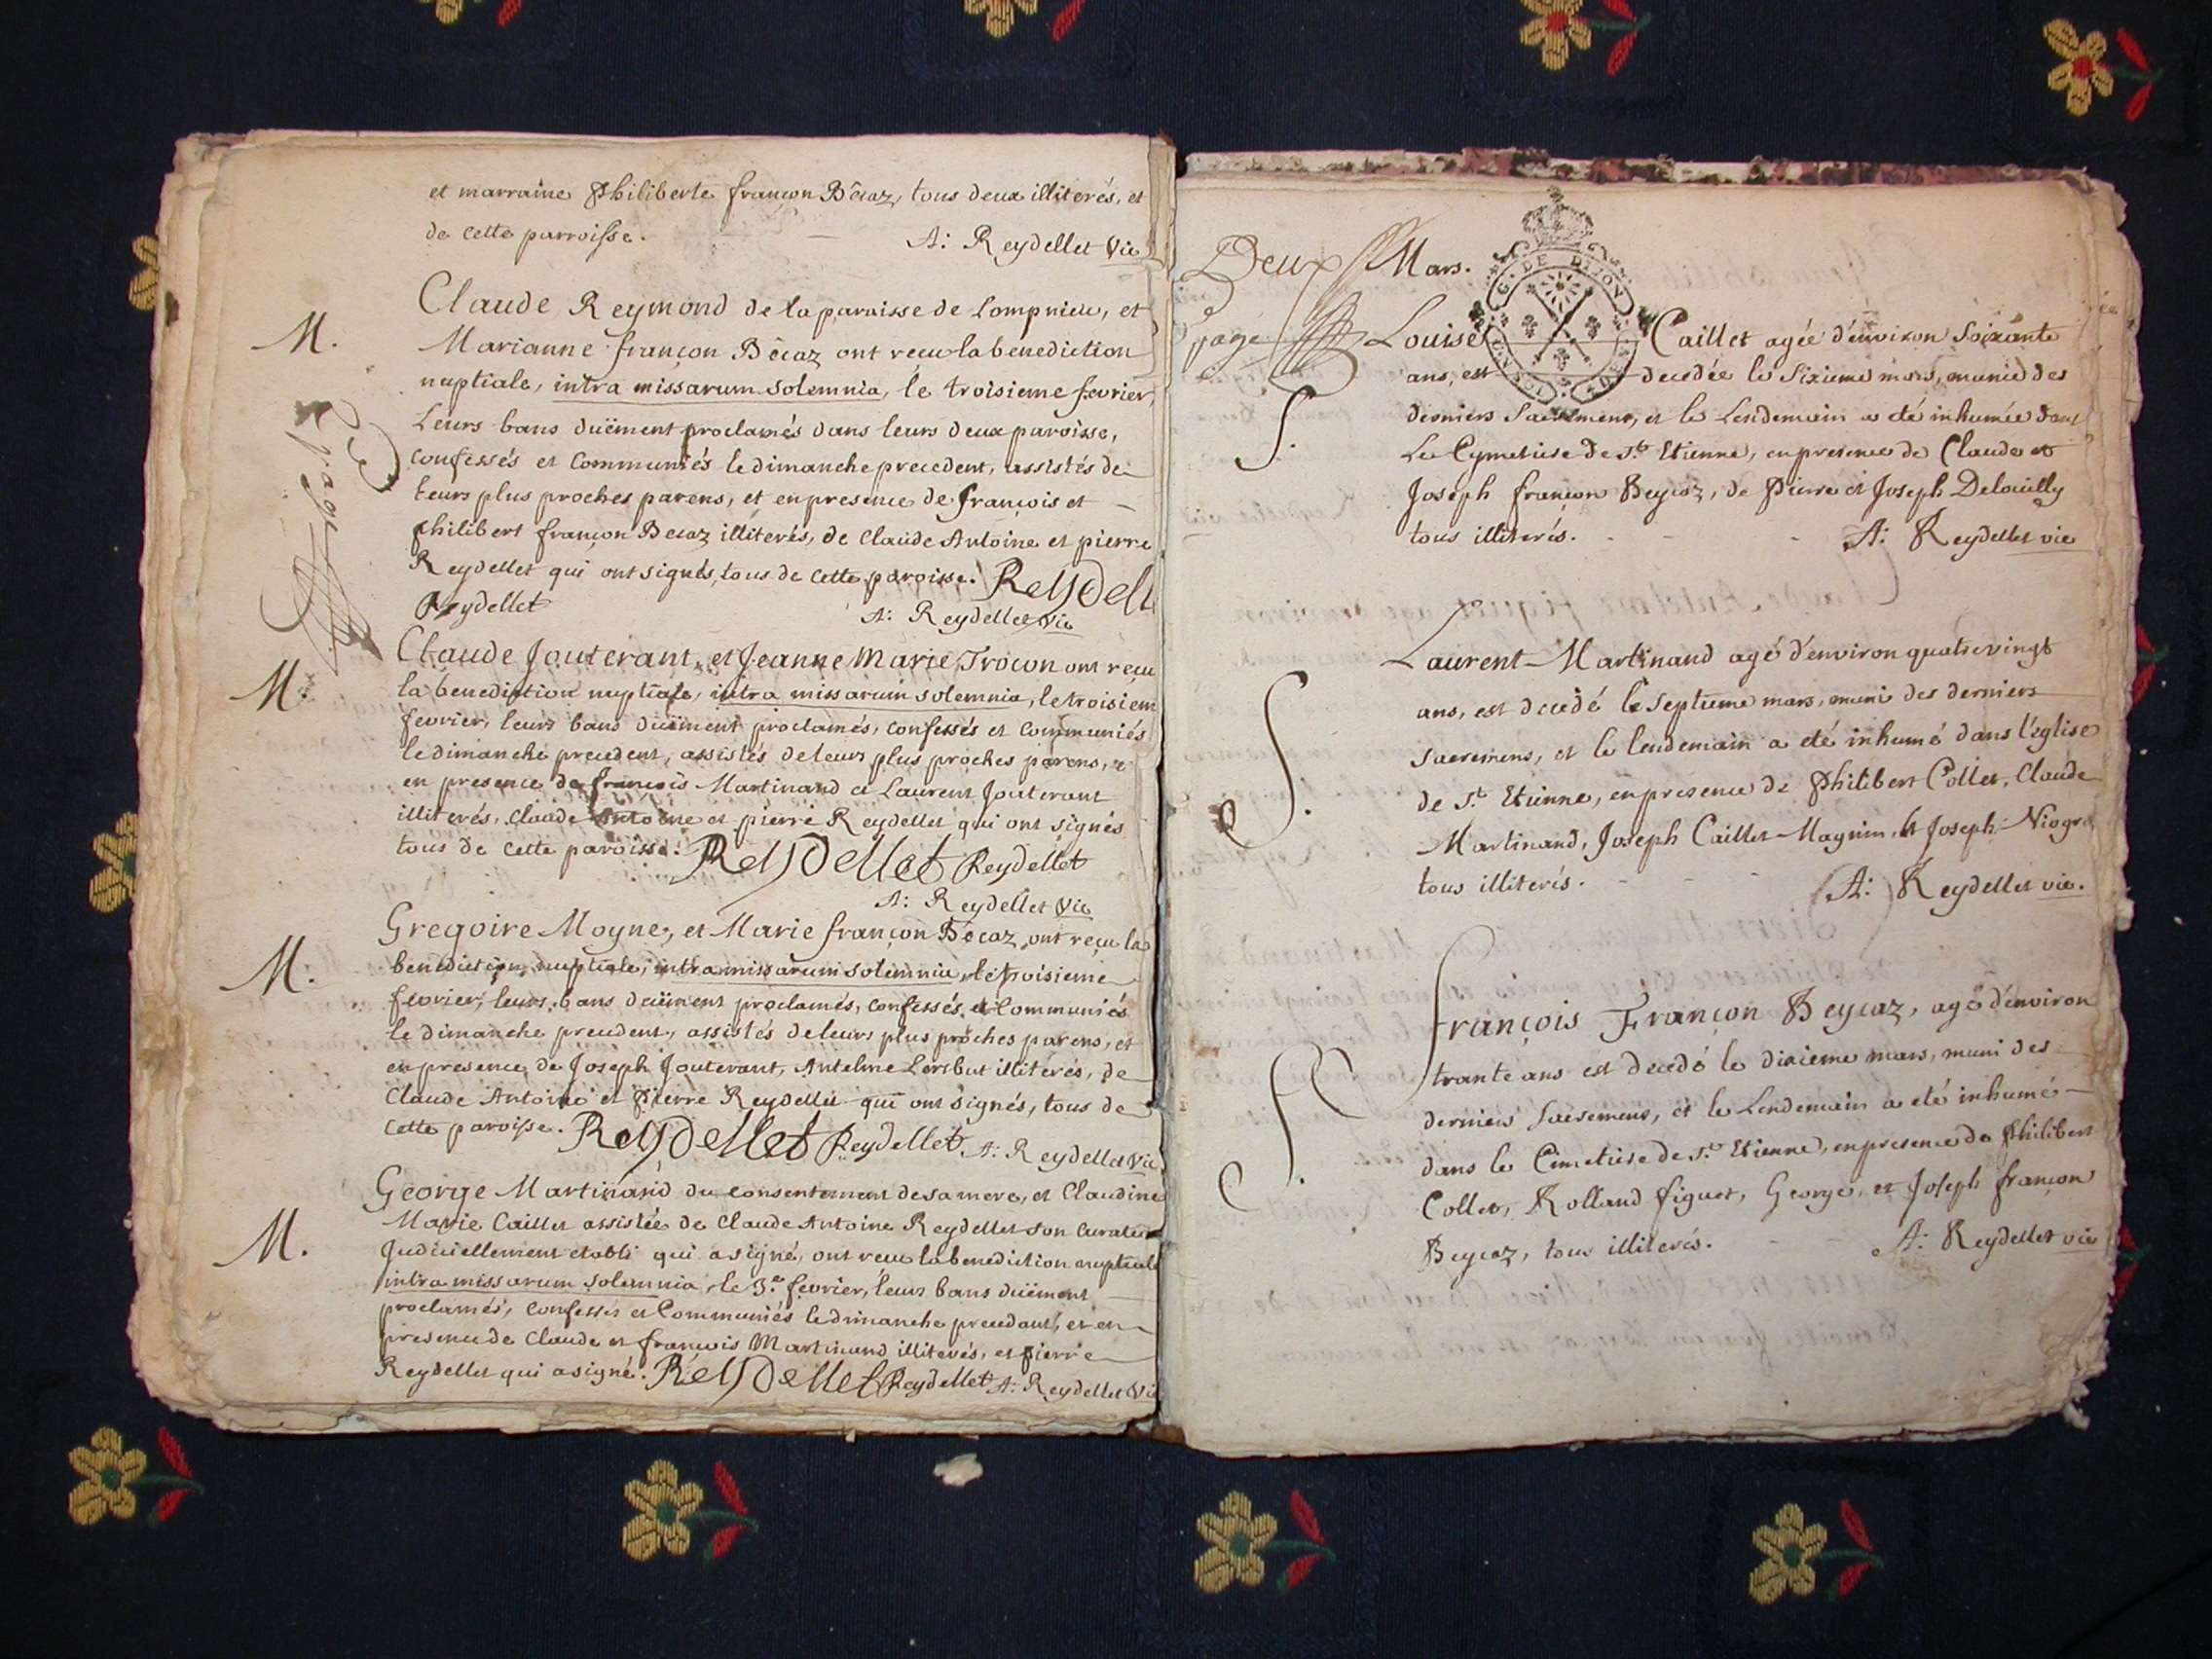 et marraine Philiberte françon Bêcaz, tous deux illiterés, et
de cette parroisse. A: Reydellet Vic
M.
Claude Reymond de la paroisse de Lompnieu, et
Marianne françon Bêcaz ont recu la benediction
nuptiale, intra missarum solemnia, le troisieme fevrier,
Leurs bans düement proclamés dans leurs deux paroisse,
confessés et communiés le dimanche precedent, assistés de
leurs plus proches parens, et en presence de françois et
philibert françon Becaz illiterés, de Claude Antoine et pierre
Reydellet qui ont signés, tous de cette paroisse. Reydell
Reydellet A: Reydellet Vic
M.
Claude Jouterant, et Jeanne Marie Trocon ont recu
la benediction nuptiale, intra missarum solemnia, le troisiem
fevrier, leurs bans düement proclamés, confessés et communiés
le dimanche precedent, assistés de leurs plus proches parens, et
en presence de françois Martinand et Laurent Jouterant
illiterés, Claude Antoine et pierre Reydellet qui ont signés
tous de cette paroisse. Reydellet Reydellet
A: Reydellet Vic
M.
Gregoire Moyne, et Marie françon Bécaz ont reçu la
benediction nuptiale, intra missarum solemnia, le troisieme
fevrier, leurs bans düement proclamés, confessés et Communiés
le dimanche precedent, assistés de leurs plus proches parens, et
en presence de Joseph Jouterant, Antelme illitérés, de
Claude Antoine et Pierre Reydellet qui ont signés, tous de
cette paroisse. Reydellet Reydellet A: Reydellet Vic
M.
George Martinand du consentement de sa mere, et Claudine
Marie Caillet assistée de Claude Antoine Reydellet son Curateur
Judiciellement etabli qui a signé, ont recu la benediction nuptiale
intra missarum solemnia, le 3.e fevrier, leurs bans düement
proclamés, confessés et Communiés le dimanche precedant, et en
presence de Claude et françois Martinand illiterés, et pierre
Reydellet qui a signé. Reydellet Reydellet A: Reydellet Vic
2e page
Deux Mars.
G. DE DIJON
page
Louise Caillet agée d'environ soixante
ans, est decedée le sixieme mars, munie des
S.
derniers Sacremens, et le Lendemain a eté inhumée dans
Le Cymetiere de St Etienne, en presence de Claude et
Joseph françon Beycaz, de Pierre et Joseph
tous illiterés. A: Reydellet vic
S.
Laurent Martinand agé d'environ quatrevingt
ans, est decedé le septieme mars, muni des derniers
sacremens, et le lendemain a eté inhumé dans l'église
de St Etienne, en presence de Philibert Collet, Claude
Martinand, Joseph Caillet Magnin, et Joseph
tous illiterés. A: Reydellet vic.
S.
François Françon Beycaz, agé d'environ
trante ans est decedé le dixieme mars, muni des
derniers Sacremens, et le Lendemain a eté inhumé
dans le Cimetiere de St Etienne, en presence de Philibert
Collet, Rolland figuet, George, et Joseph françon
Beycaz, tous illiterés. A: Reydellet vic